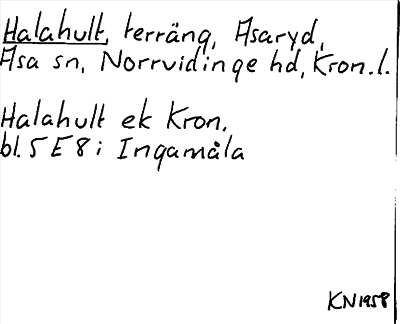 Halahult, terräng, Asaryd,
Asa sn, Norrvidinge hd, Kron.l.
Halahult ek Kron,
bl. 5 E 8 i Ingamåla
KN1958